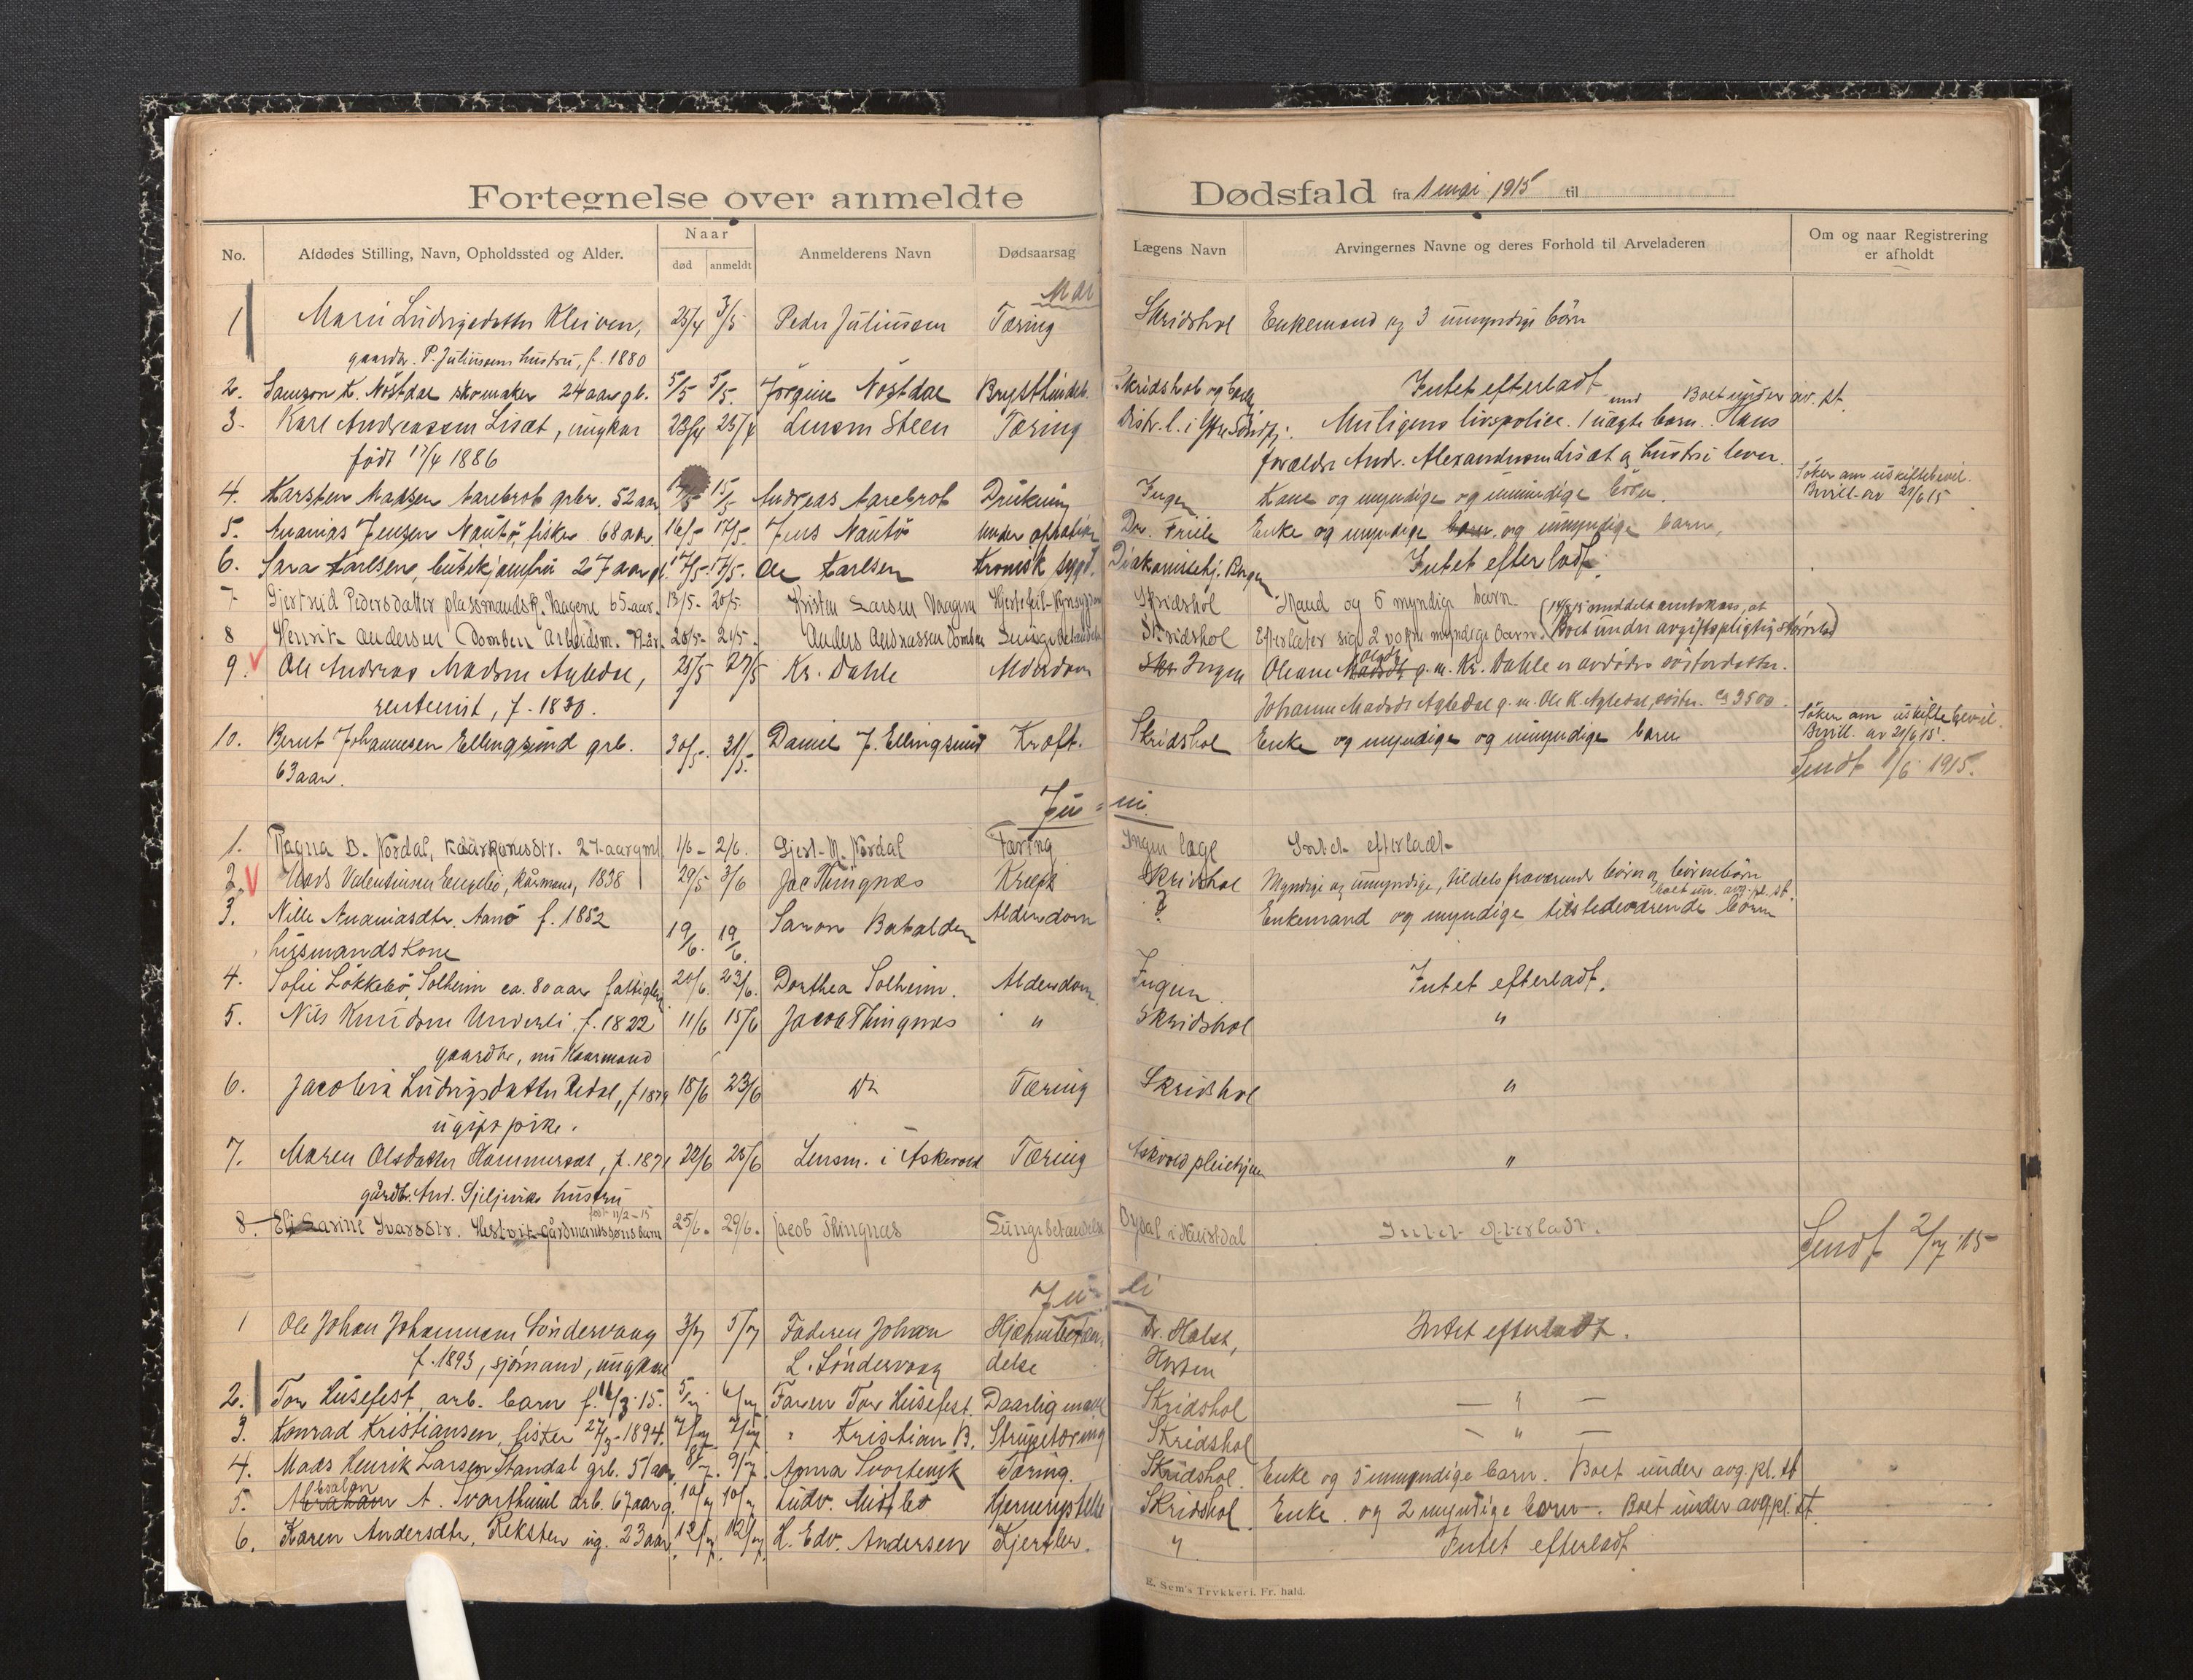 Fortegnelse over anmeldte Dødsfald fra 1 mai 1915 til
No. Afdødes Stilling, Navn, Opholdssted og Alder. Naar død anmeldt Anmelderens Navn Dødsaarsag Lægens Navn Arvingernes Navne og deres Forhold til Arveladeren Om og naar Registrering er afholdt
Mai
1 Marie Ludvigsdatter Kleiven, 25/4 3/5 Peder Juliussen Tæring Skridshol Enkemand og 3 umyndige börn
gaardbr. P. Juliussens hustru, f. 1880
2. Samson K. Nöstdal skomaker 24 aar g l. 5/5 5/5. Jörgine Nöstdal Skridshol og Intet efterladt
3. Karl Andreassen Lisæt, ungkar 23/4 25/4 Lensm Steen Tæring Distr. l. i Muligens livspolice. 1 uægte barn. Hans Boet under av. st.
født 17/4 1886 forældre Andr. Alexandersen Lisæt og hustru lever.
4. Karsten Madsen Barebrot grbr. 52 aar 15/5 Andreas Barebrot Drukning Ingen Kone og myndige og umyndige börn. Söker om uskiftebevil.
Bevill. av 21/6 15
5. Ananias Jensen Nautö, fisker 68 aar. 16/5 17/5. Jens Nautö Under operation Dr. Friele Enke og myndige barn og umyndige barn,
6. Sara Karlsen, butikjomfru 27 aar gl. 17/5. 17/5. Ole Karlsen Kronisk sygd. Diakonissehj. Bergen Intet efterladt.
7 Gjertrud Pedersdatter plassmandsk. Vaagene 65 aar. 13/5- 20/5. Kristen Larsen Vaagene Skridshol Mand og 6 myndige barn (14/8 15 meddelt amtskas, at
8 Henrik Andersen Domben arbeidsm. 20/5- 21/5. Anders Andreassen Domben Lungebetændelse Skridshol Efterlater sig 2 voksne myndige barn. Boet under avgiftspligtig størrelse)
9 Ole Andreas Madsen Aglødal, 25/5 27/5 Kr. Dahle Alderdom Skr Ingen Oleane Olsdtr g. m. Kr. Dahle er avdødes søsterdatter.
rentenist, f. 1830. Johanne Madsdtr Aglødal g. m. Ole K. Aglødal, søster. Ca 3500
10. Bernt Johannesen Ellingsund grb. 30/5- 31/5. Daniel J. Ellingsund Kræft. Skridshol Enke og myndige og umyndige barn Söker om uskiftebevil.
Bevill. av 21/6 15.
63 aar. Sendt 1/6 1915.
Juni
1. Ragna B. Nordal, 27 aar gml 1/6- 2/6. Gjert M. Nordal Tæring Ingen læge Intet efterladt
2. Mads Valentinsen Engebø, kårmand, 1838 29/5 3/6 Jac Thingnæs Kræft Skridshol Myndige og umyndige, tildels fraværende börn og börnebörn
boet un. avg. pl. st.
3. Nille Ananiasdtr. Aanö f. 1852 19/6. 19/6. Samson Batalden Alderdom ? Enkemand og myndige tilstedeværende börn
husmandskone
4. Sofie Løkkebö, Solheim ca. 80 aar fattiglem 20/6. 23/6. Dorthea Solheim. Alderdom. Ingen. Intet efterladt.
5. Nils Knudsen Underli, f. 1822 11/6 15/6 Jacob Thingnæs " Skridshol "
gaardbr., nu Kaarmand
6. Jacobine Ludvigsdatter Redal, f 1879 18/6 23/6 do Tæring Skridshol "
ugift pike.
7. Maren Olsdatter Hammerset, f. 1871 22/6 25/6 Lensm. i Askevold Tæring Askvold pleiehjem "
gårdbr. And. Gjeljeviks hustru
født 11/2-15
8. Eli Sarine Ivarsdtr. Hestvik gårdmandssøns barn 25/6- 29/6. Jacob Thingnæs Lungebetændelse i Naustdal Intet efterladt. Sendt 2/7 15
Juli
1 Ole Johan Johannesen Söndervaag 3/7 5/7 Faderen Johan Hjærnebetæn- Dr. Holst, Intet efterladt.
f. 1893, sjømand, ungkar L. Söndervaag delse Horten
2. Tor Husefest, arb. barn f. 5/7 6/7 Faren Tor Husefest. Daarlig mave Skridshol — " —
3. Konrad Kristiansen, fisker 1894. 7/7 7/7 " Kristian B. Strupetæring Skridshol — " —
4. Mads Henrik Larsen Standal grb. 51 aar 8/7. 9/7. Anna Svortevik Tæring. Skridshol. Enke og 5 umyndige barn. Boet under avg. pl. st
5. Absalon Abraham A. Svarthumle arb. 67 aar g. 10/7 10/7 Ludv. Midtbö Skridshol. Enke og 2 myndige barn. Boet under avg pl. st.
6. Karen Andersdtr. Reksten ug. 23 aar. 12/7. 12/7. H. Edv. Andersen Kjertler. " Intet efterladt
E. Sem's Trykkeri, Fr.hald.